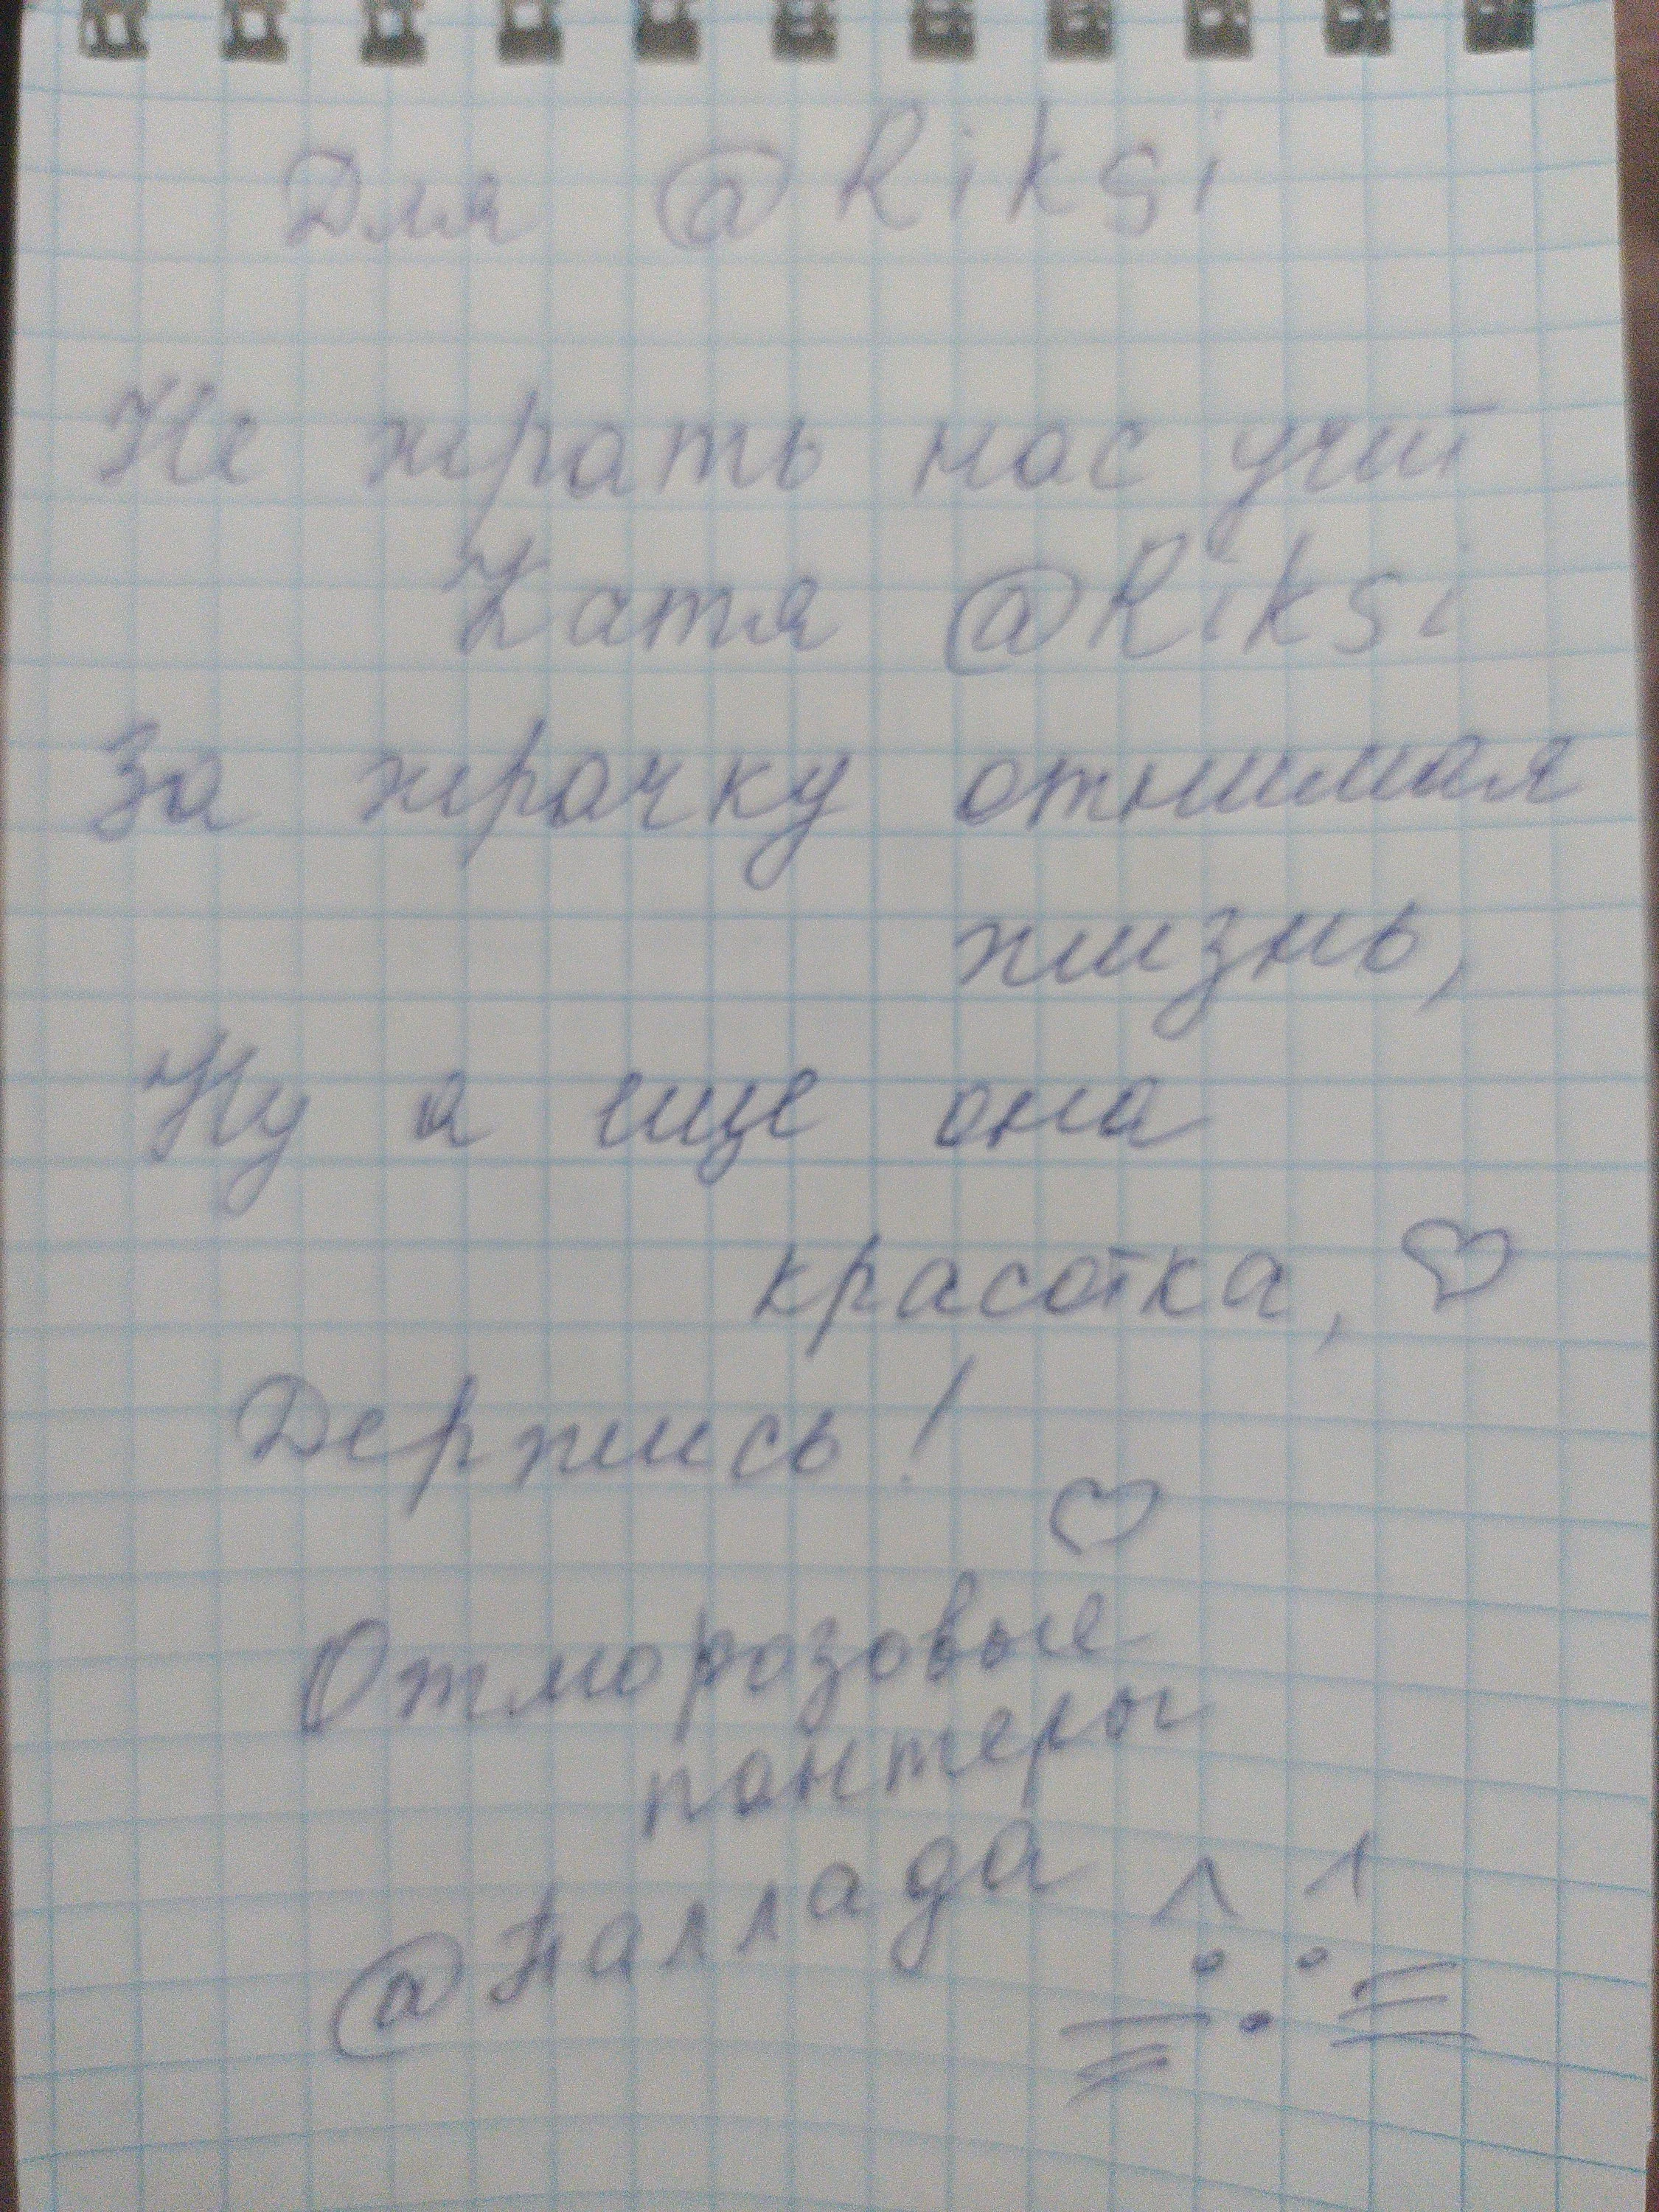 Для @Riksi
Не жрать нас учит
Катя @Riksi
За жрачку отнимая
жизнь,
Ну а еще она
красотка, ♡
Держись!
♡
Отморозовые
пантеры
@Паллада